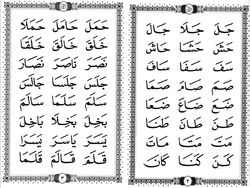 جَلَ جَلَا جَالَ
حَشَ حَشَا حَاشَ
سَفَ سَفَا سَافَ
صَمَ صَامَ صَمَا
ضَعَ ضَاعَ ضَعَا
طَنَ طَانَ طَنَا
مَتَ مَتَا مَاتَ
كَنَ كَنَا كَانَ
حَمَلَ حَامَلَ حَمَلَا
خَلَقَ خَالَقَ خَلَقَا
نَصَرَ نَاصَرَ نَصَارَ
جَلَسَ جَلَسَا جَالَسَ
سَلَمَ سَلَمَا سَالَمَ
بَخَلَ بَخَلَا بَاخَلَ
يَسَرَ يَاسَرَ يَسَرَا
قَلَمَ قَالَمَ قَلَمَا